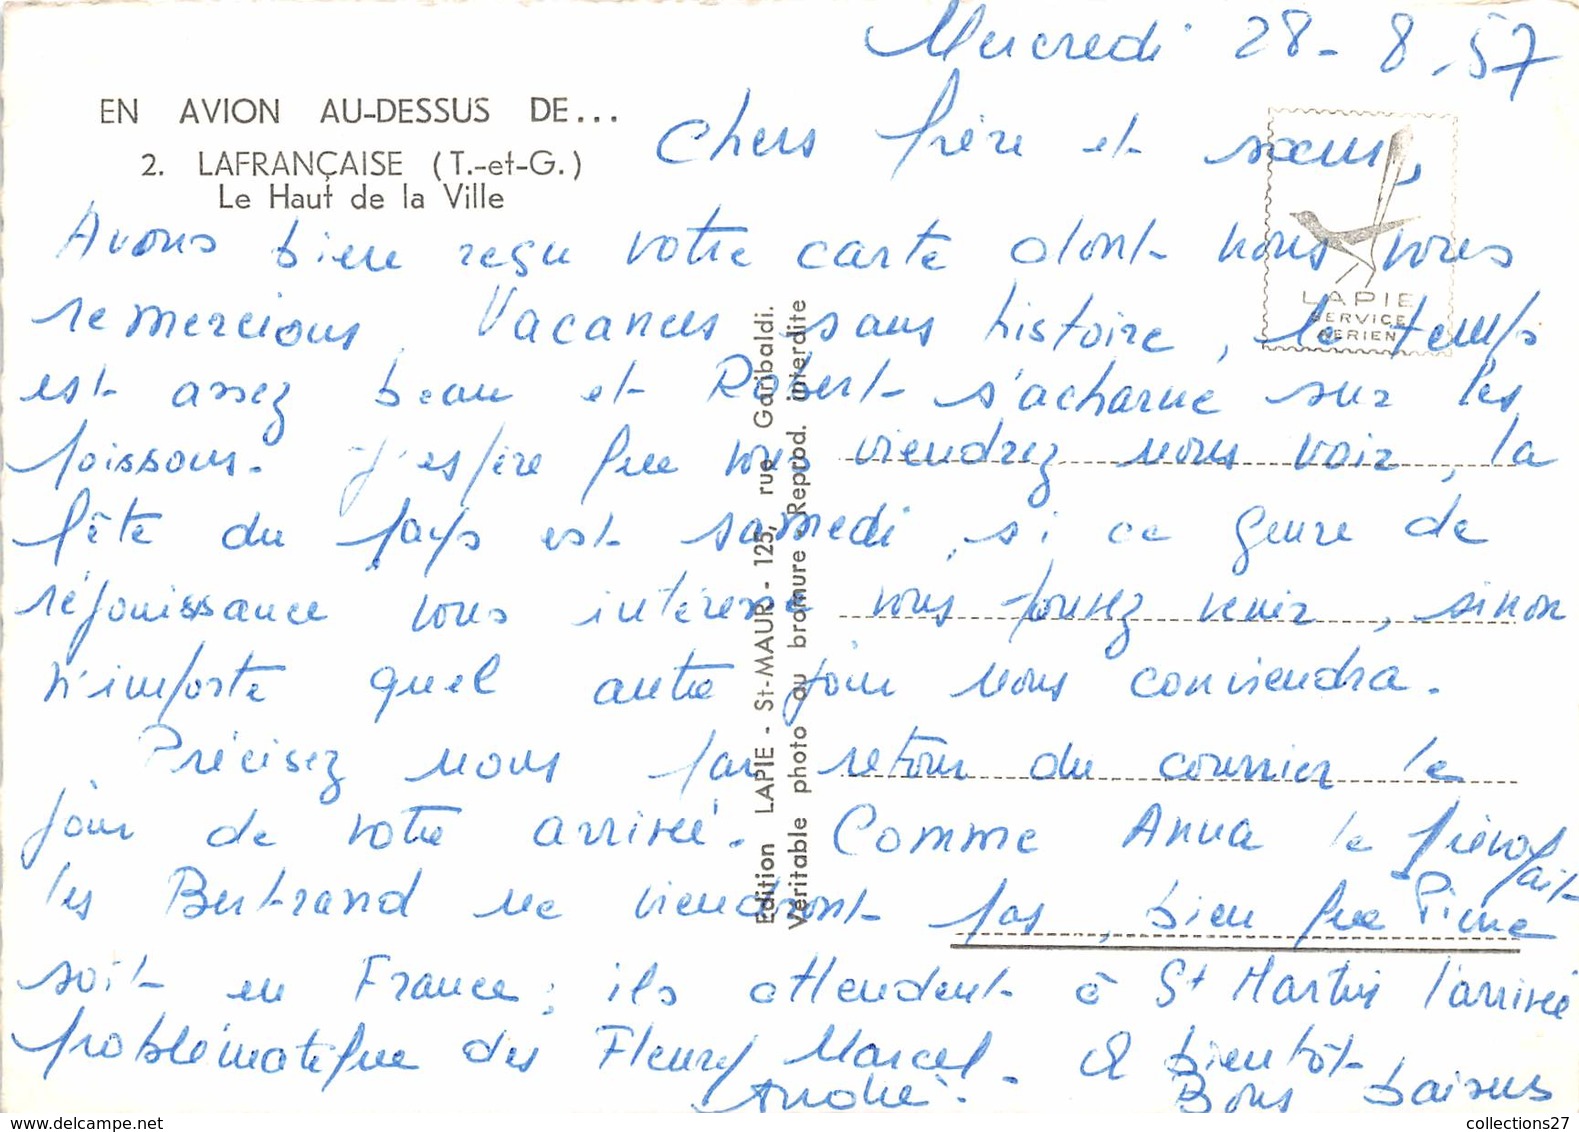 Mercredi 28-8-57
EN AVION AU-DESSUS DE...
2. LAFRANÇAISE (T.-et-G.)
Le Haut de la Ville
LAPIE
SERVICE
AERIEN
Chers frère et sœur,
Avons bien reçu votre carte dont nous vous
remercions. Vacances sans histoire, le temps
est assez beau et Robert s'acharne sur les
poissons. J'espère que vous viendrez nous voir, la
fête du pays est samedi, si ce genre de
réjouissance vous intéresse vous pouvez venir, sinon
n'importe quel autre jour nous conviendra.
Précisez nous par retour du courrier le
jour de votre arrivée. Comme Anna le prévoyait
les Bertrand ne viendront pas, bien que Pierre
soit en France; ils attendent à St Martin l'arrivée
problématique des Fleury Marcel. A bientôt
Bons baisers
André.
Edition LAPIE - St-MAUR - 125, rue Garibaldi.
Véritable photo au bromure Reprod. interdite
collections27